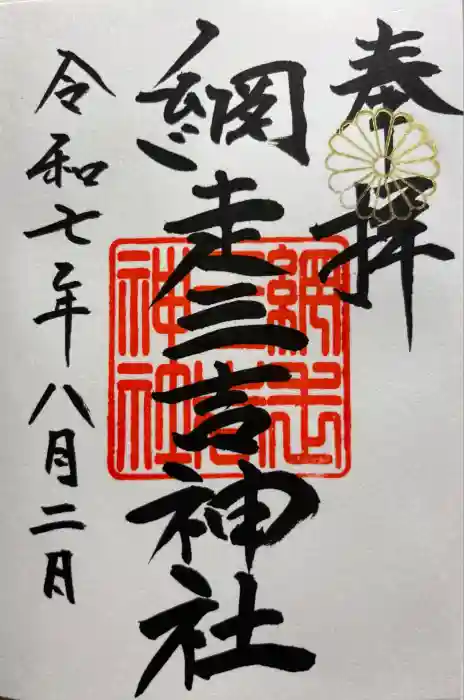 奉拝
網走三吉神社
令和七年八月二日
網走三吉神社